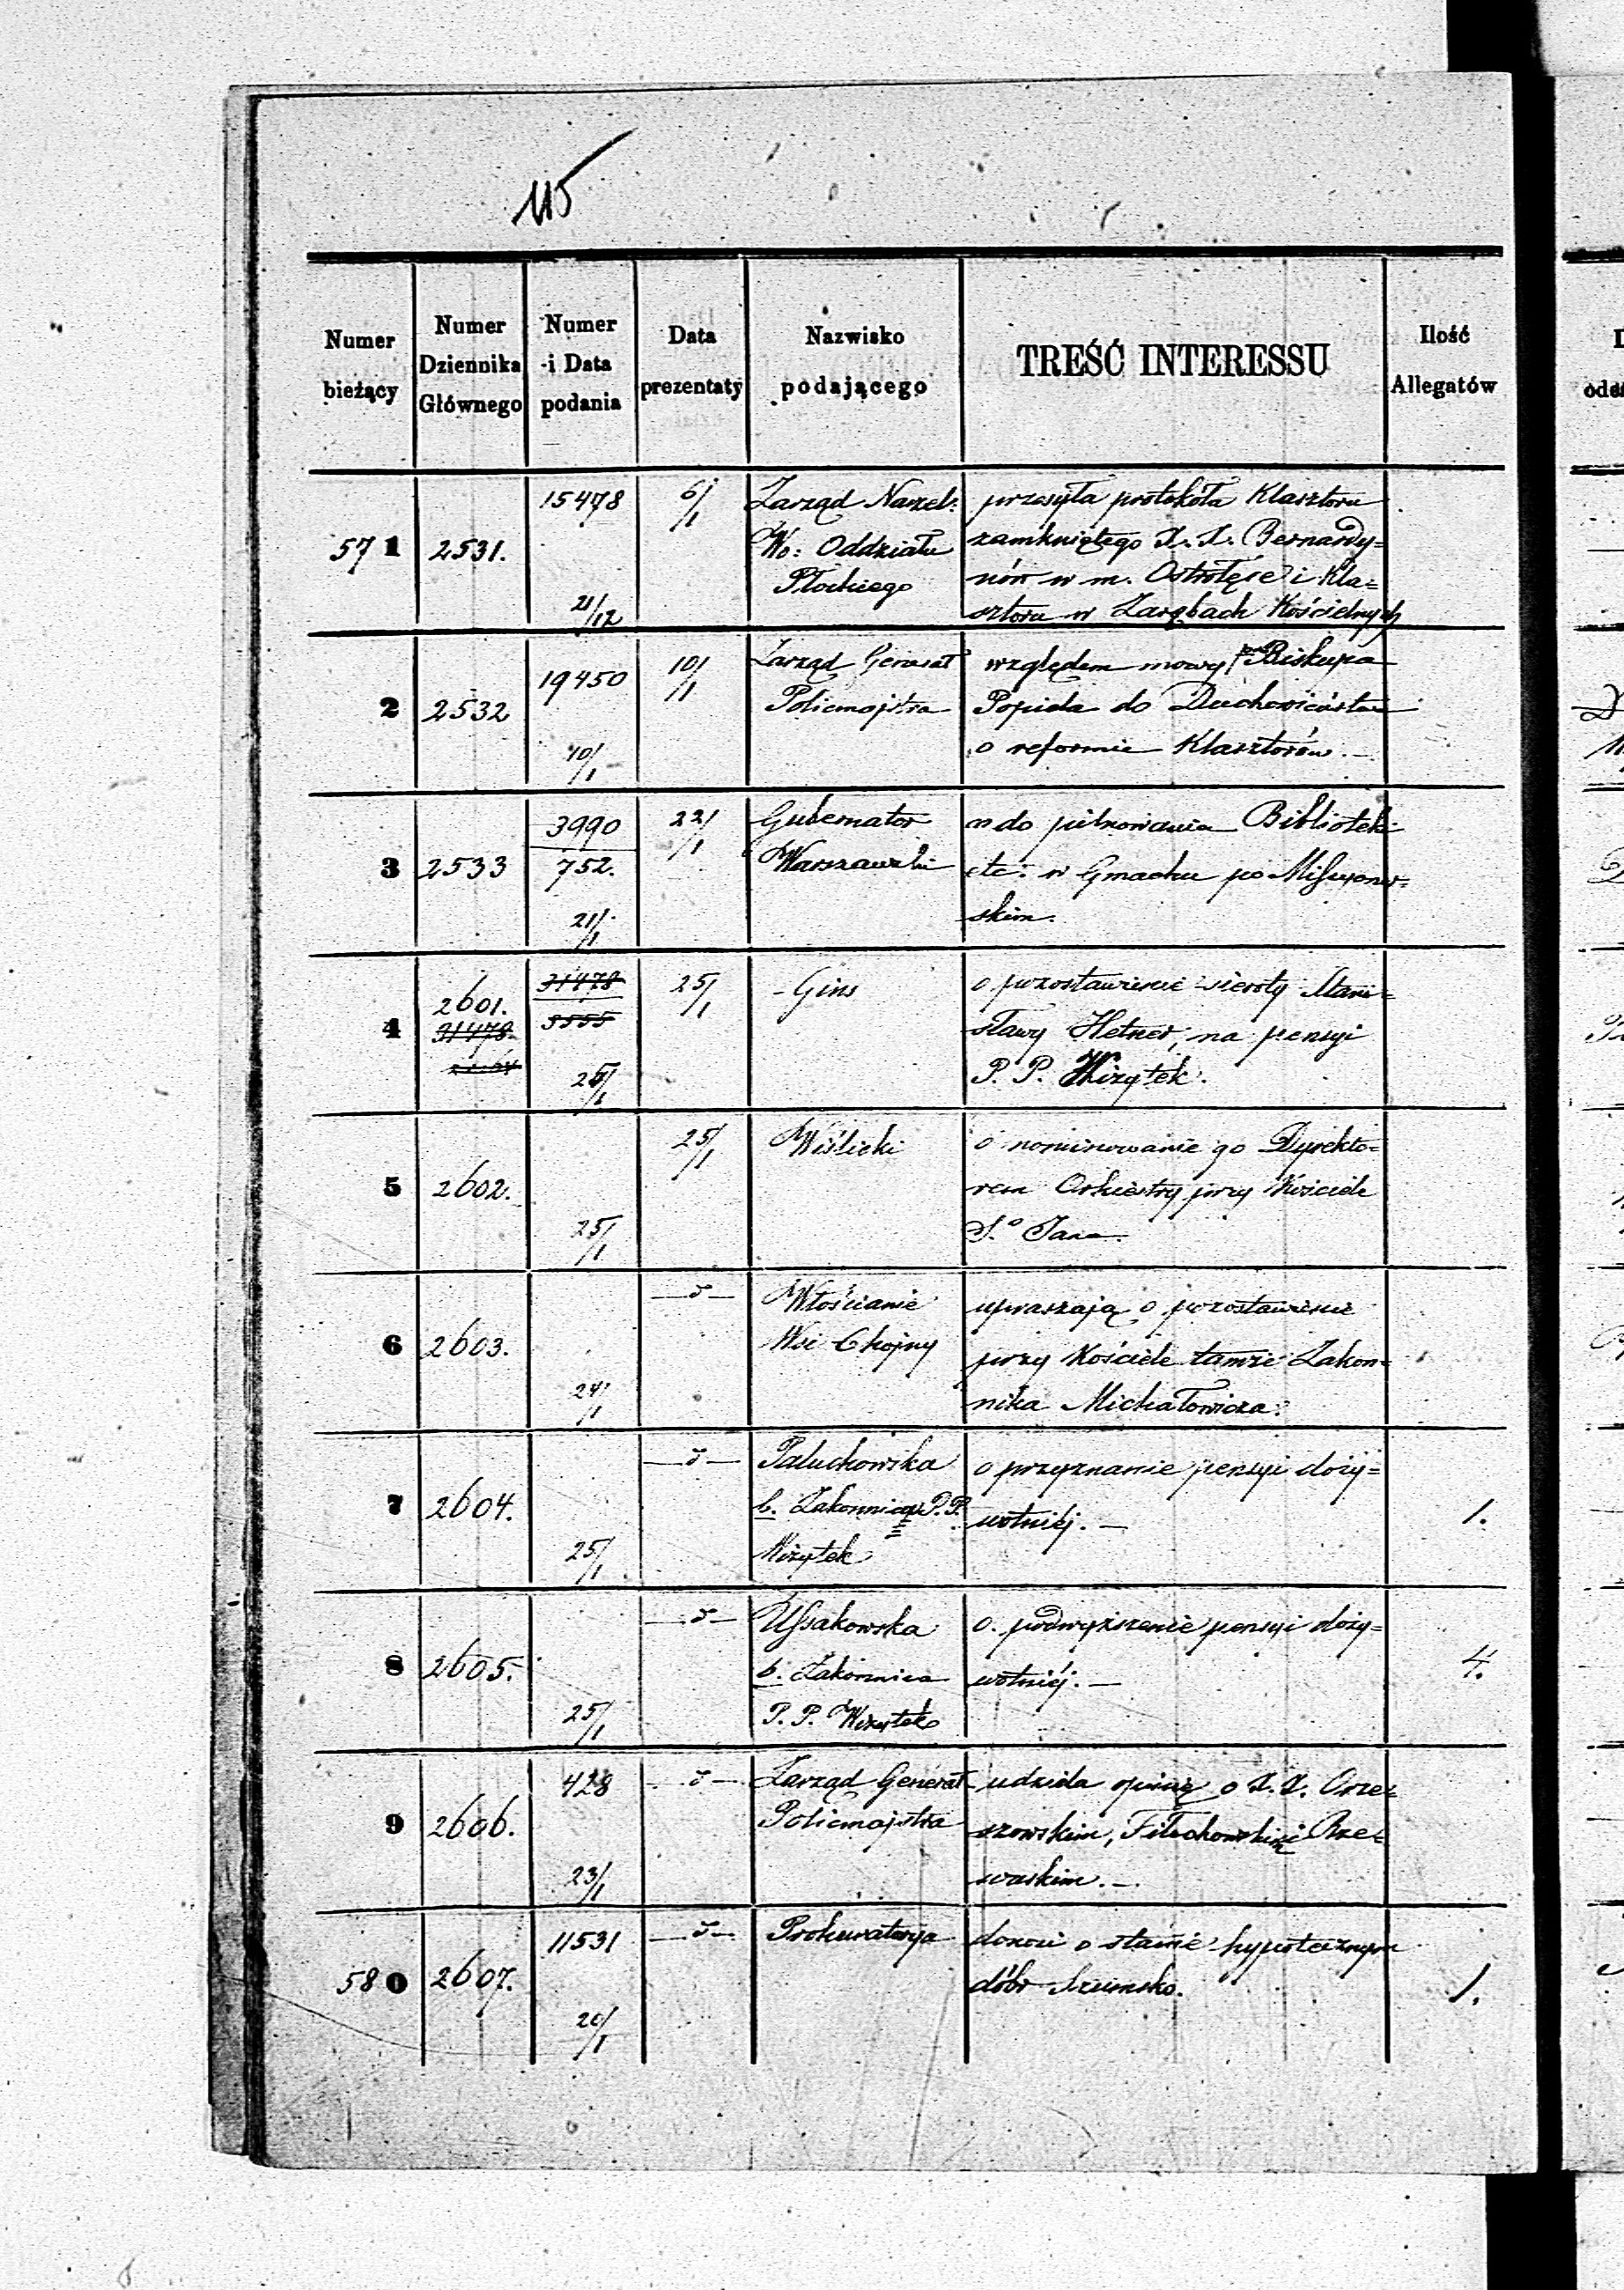 115
Numer bieżący | Numer Dziennika Głównego | Numer i Data podania | Data prezentaty | Nazwisko podającego | TREŚĆ INTERESSU | Ilość Allegatów
571 | 2531. | 15478 21/12 | 6/1 | Zarząd Naczel: | przesyła protokóła Klasztoru
Wo: Oddziału | zamkniętego X. X. Bernardy=
Płockiego | nów w m. Ostrołęce i Kla=
sztoru w Zarębach Kościelnych
2 | 2532 | 19450 10/1 | 10/1 | Zarząd Generał | względem mowy Biskupa
Policmajstra | Popiela do Duchowieństwa
o reformie Klasztorów. —
3 | 2533 | 3990 752. 21/1 | 22/1 | Gubernator | do pilnowania Biblioteki
Warszawski | etc: w Gmachu po Missyonar=
skim.
4 | 2601. 31478 | 31478 3555 25/1 | 25/1 | Gins | o pozostawienie sieroty Stani=
sławy Hetner, na pensyi
P. P. Wizytek.
5 | 2602. | 25/1 | 25/1 | Wiślicki | o nominowanie go Dyrekto=
rem Orkiestry przy Kościele
S.o Jana.
6 | 2603. | 24/1 | Włościanie | upraszają o pozostawienie
Wsi Chojny | przy Kościele tamże Zakon=
nika Michałowicza.
7 | 2604. | 25/1 | Paluchowska | o przyznanie pensyi doży= | 1.
b. Zakonnica P. P. | wotniéj. —
Wizytek
8 | 2605. | 25/1 | Ussakowska | o podwyższenie pensyi doży= | 4.
b. Zakonnica | wotniéj. —
P. P. Wizytek
9 | 2606. | 428 23/1 | Zarząd Generał | udziela opinię o X. X. Orze=
Policmajstra | szowskim, i Rze=
waskim. —
580 | 2607. | 11531 20/1 | Prokuratorya | donosi o stanie hypotecznym | 1.
dóbr Szumsko.